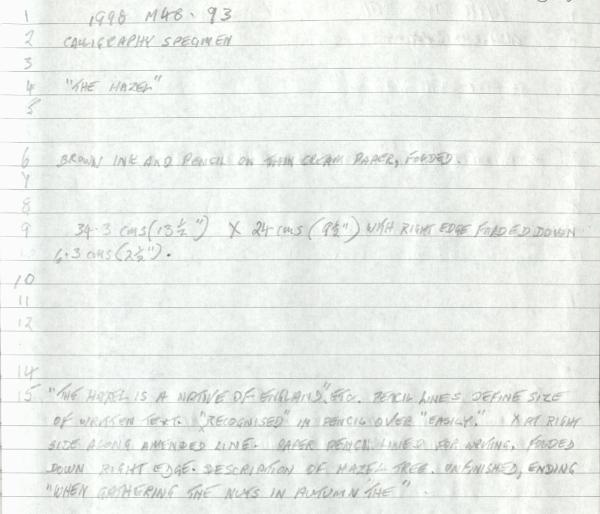 1 1998 M48.93
2 CALLIGRAPHY SPECIMEN
3
4 "THE HAZEL"
5
6 BROWN INK AND PENCIL ON THIN CREAM PAPER, FOLDED.
7
8
9 34.3 cms (13½") X 24 cms (9½") WITH RIGHT EDGE FOLDED DOWN
6.3 cms (2½").
10
11
12
14
15 "THE HAZEL IS A NATIVE OF ENGLAND", ETC. PENCIL LINES DEFINE SIZE
OF WRITTEN TEXT. "RECOGNISED" IN PENCIL OVER "EASILY." X AT RIGHT
SIDE ALONG AMENDED LINE. PAPER PENCIL LINED FOR WRITING. FOLDED
DOWN RIGHT EDGE. DESCRIPTION OF HAZEL TREE. UNFINISHED, ENDING
"WHEN GATHERING THE NUTS IN AUTUMN THE".